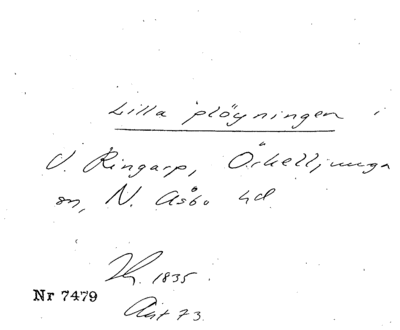 Lilla plöyningen i
V. Ringarp, Örkelljunga
sn, N. Åsbo hd
1835.
Nr 7479
Akt 73.